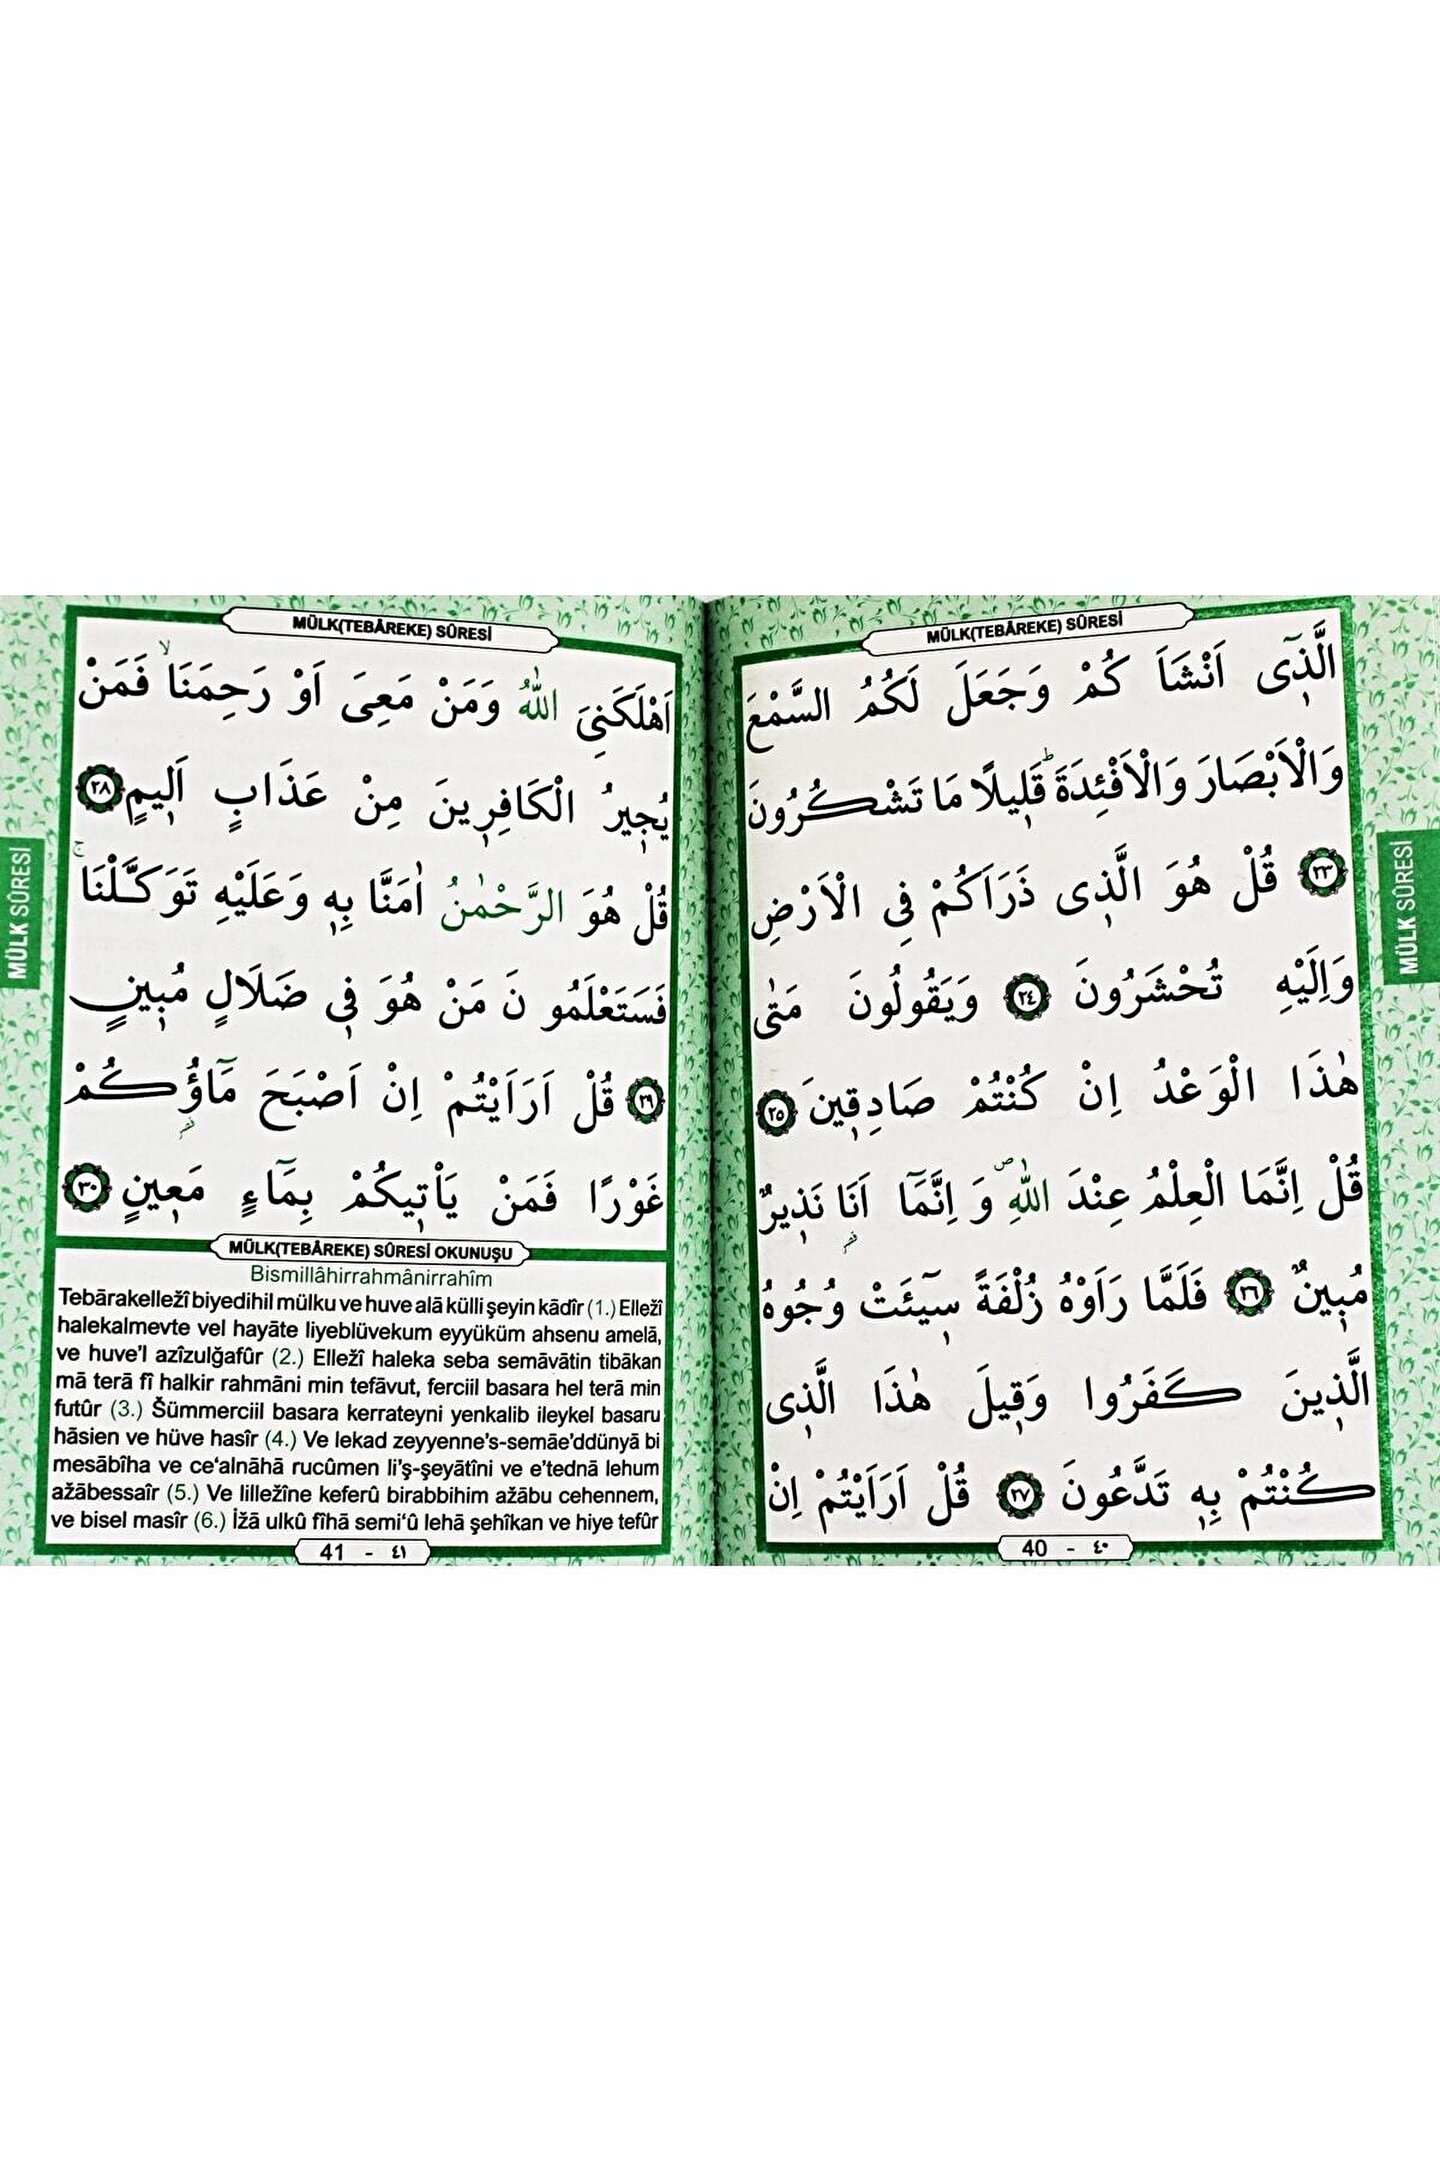 MÜLK(TEBÂREKE) SÛRESİ
اَلَّذٖٓى اَنْشَاَ كُمْ وَجَعَلَ لَكُمُ السَّمْعَ
وَالْاَبْصَارَ وَالْاَفْئِدَةَ ؕ قَلٖيلًا مَا تَشْكُرُونَ
﴿٢٣﴾ قُلْ هُوَ الَّذٖى ذَرَاَكُمْ فِى الْاَرْضِ
وَاِلَيْهِ تُحْشَرُونَ ﴿٢٤﴾ وَيَقُولُونَ مَتٰى
هٰذَا الْوَعْدُ اِنْ كُنْتُمْ صَادِقٖينَ ﴿٢٥﴾
قُلْ اِنَّمَا الْعِلْمُ عِنْدَ اللّٰهِ ۖ وَ اِنَّمَٓا اَنَا۬ نَذٖيرٌ
مُبٖينٌ ﴿٢٦﴾ فَلَمَّا رَاَوْهُ زُلْفَةً سٖٓيئَتْ وُجُوهُ
الَّذٖينَ كَفَرُوا وَقٖيلَ هٰذَا الَّذٖى
كُنْتُمْ بِهٖ تَدَّعُونَ ﴿٢٧﴾ قُلْ اَرَاَيْتُمْ اِنْ
40 - ٤٠
MÜLK SÛRESİ
MÜLK(TEBÂREKE) SÛRESİ
اَهْلَكَنِىَ اللّٰهُ وَمَنْ مَعِىَ اَوْ رَحِمَنَا ۙ فَمَنْ
يُجٖيرُ الْكَافِرٖينَ مِنْ عَذَابٍ اَلٖيمٍ ﴿٢٨﴾
قُلْ هُوَ الرَّحْمٰنُ اٰمَنَّا بِهٖ وَعَلَيْهِ تَوَكَّلْنَا ۚ
فَسَتَعْلَمُو نَ مَنْ هُوَ فٖى ضَلَالٍ مُبٖينٍ
﴿٢٩﴾ قُلْ اَرَاَيْتُمْ اِنْ اَصْبَحَ مَٓاؤُ۬كُمْ
غَوْرًا فَمَنْ يَاْتٖيكُمْ بِمَٓاءٍ مَعٖينٍ ﴿٣٠﴾
MÜLK(TEBÂREKE) SÛRESİ OKUNUŞU
Bismillâhirrahmânirrahîm
Tebārakelležī biyedihil mülku ve huve alā külli şeyin kādīr (1.) Elležī
halekalmevte vel hayāte liyeblüvekum eyyüküm ahsenu amelā,
ve huve'l azīzulğafūr (2.) Elležī haleka seba semāvātin tibākan
mā terā fī halkir rahmāni min tefāvut, ferciil basara hel terā min
futūr (3.) Šümmerciil basara kerrateyni yenkalib ileykel basaru
hāsien ve hüve hasīr (4.) Ve lekad zeyyenne's-semāe'ddünyā bi
mesābīha ve ce'alnāhā rucūmen li'ş-şeyātīni ve e'tednā lehum
ažābessaīr (5.) Ve lilležīne keferū birabbihim ažābu cehennem,
ve bisel masīr (6.) İžā ulkū fīhā semi'ū lehā şehīkan ve hiye tefūr
41 - ٤١
MÜLK SÛRESİ